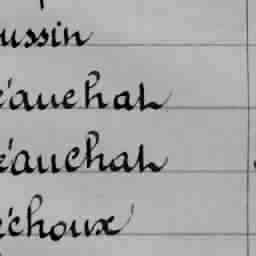 ussin
éauchat
éauchat
échoux